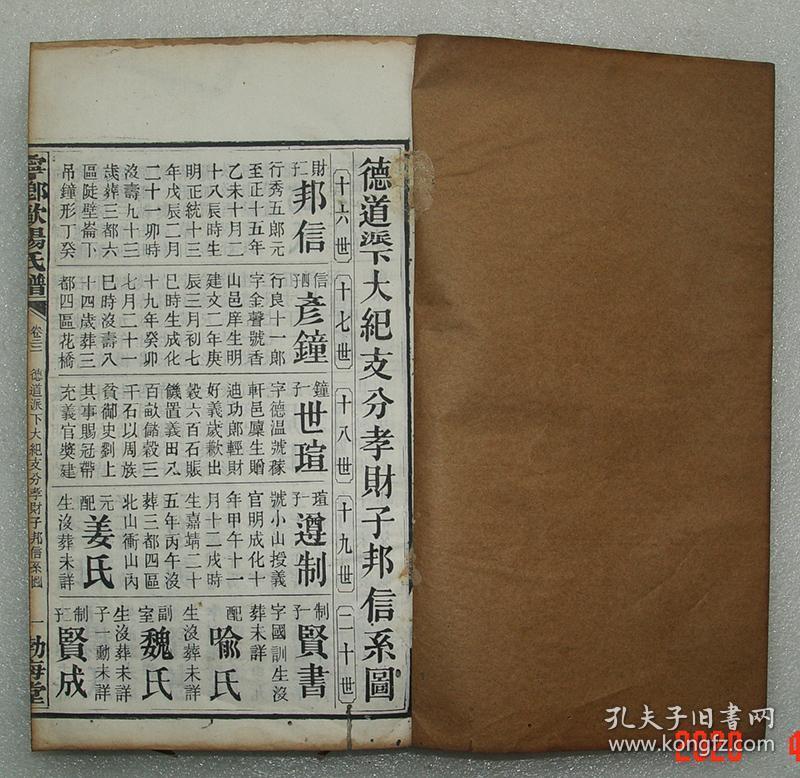 德道派下大紀支分孝財子邦信系圖
十六世
十七世
十八世
十九世
二十世
財子
邦信
行秀五郎元
至正十五年
乙未十月二
十八辰時生
明正統十三
年戊辰二月
二十一卯時
沒壽九十三
歲葬三都六
區陡壁崙下
吊鐘形丁癸
信
彥鐘
行良十一郎
字金聲號香
山邑庠生明
建文二年庚
辰三月初七
巳時生成化
十九年癸卯
七月二十一
巳時沒壽八
十四歲葬三
都四區花橋
鐘子
世瑄
字德溫號稼
軒邑廩生贈
迪功郎輕財
好義歲歉出
穀六百石賑
饑置義田八
百畝儲穀三
千石以周族
貧御史劉上
其事賜冠帶
充義官獎建
瑄子
遵制
號小山授義
官明成化十
年甲午十一
月十二戌時
生嘉靖二十
五年丙午沒
葬三都四區
北山衝山內
元配
姜氏
生沒葬未詳
制子
賢書
字國訓生沒
葬未詳
配
喻氏
生沒葬未詳
副室
魏氏
生沒葬未詳
子一動未詳
制
賢成
寧鄉歐陽氏譜
卷三
德道派下大紀支分孝財子邦信系圖
一
渤海堂
孔夫子旧书网
www.kongfz.com
2020